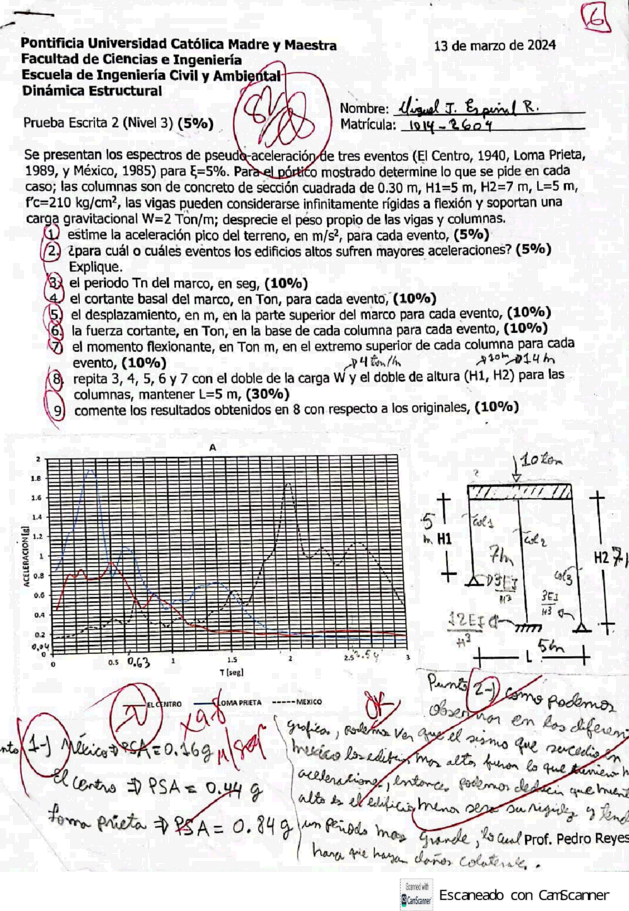 6
Pontificia Universidad Católica Madre y Maestra
13 de marzo de 2024
Facultad de Ciencias e Ingeniería
Escuela de Ingeniería Civil y Ambiental
Dinámica Estructural
Nombre: Miguel J. Espinal R.
Prueba Escrita 2 (Nivel 3) (5%)
Matrícula: 1014-2604
Se presentan los espectros de pseudo-aceleración de tres eventos (El Centro, 1940, Loma Prieta,
1989, y México, 1985) para ξ=5%. Para el pórtico mostrado determine lo que se pide en cada
caso; las columnas son de concreto de sección cuadrada de 0.30 m, H1=5 m, H2=7 m, L=5 m,
f'c=210 kg/cm², las vigas pueden considerarse infinitamente rígidas a flexión y soportan una
carga gravitacional W=2 Ton/m; desprecie el peso propio de las vigas y columnas.
1. estime la aceleración pico del terreno, en m/s², para cada evento, (5%)
2. ¿para cuál o cuáles eventos los edificios altos sufren mayores aceleraciones? (5%)
Explique.
3. el periodo Tn del marco, en seg, (10%)
4. el cortante basal del marco, en Ton, para cada evento, (10%)
5. el desplazamiento, en m, en la parte superior del marco para cada evento, (10%)
6. la fuerza cortante, en Ton, en la base de cada columna para cada evento, (10%)
7. el momento flexionante, en Ton m, en el extremo superior de cada columna para cada
evento, (10%)
4 ton/m
10m 14m
8. repita 3, 4, 5, 6 y 7 con el doble de la carga W y el doble de altura (H1, H2) para las
columnas, mantener L=5 m, (30%)
9. comente los resultados obtenidos en 8 con respecto a los originales, (10%)
A
ACELERACION [g]
2
1.8
1.6
1.4
1.2
1
0.8
0.6
0.4
0.2
0.04
0
0 0.5 0.63 1 1.5 2 2.5 2.54 3
T [seg]
EL CENTRO LOMA PRIETA MEXICO
10 ton
5 m H1
Col1
Col2
Col3
7m
H2 7
3EI
H³
3EI
H³
12EI
H³
L 5m
Punto 2-) como podemos
observar en las diferen
grafica, podemos ver que el sismo que sucedio en
mexico los edificio mas alto fueron lo que
aceleraciones, entonces podemos deducir que
alto es el edificio menor sera su rigidez y
un periodo mas grande, lo cual
hara que hayan daños colaterale.
1-) México ⇒ PSA = 0.16g
x9.8
El centro ⇒ PSA = 0.44 g
Loma prieta ⇒ PSA = 0.84 g
Prof. Pedro Reyes
Scanned with
CamScanner
Escaneado con CamScanner